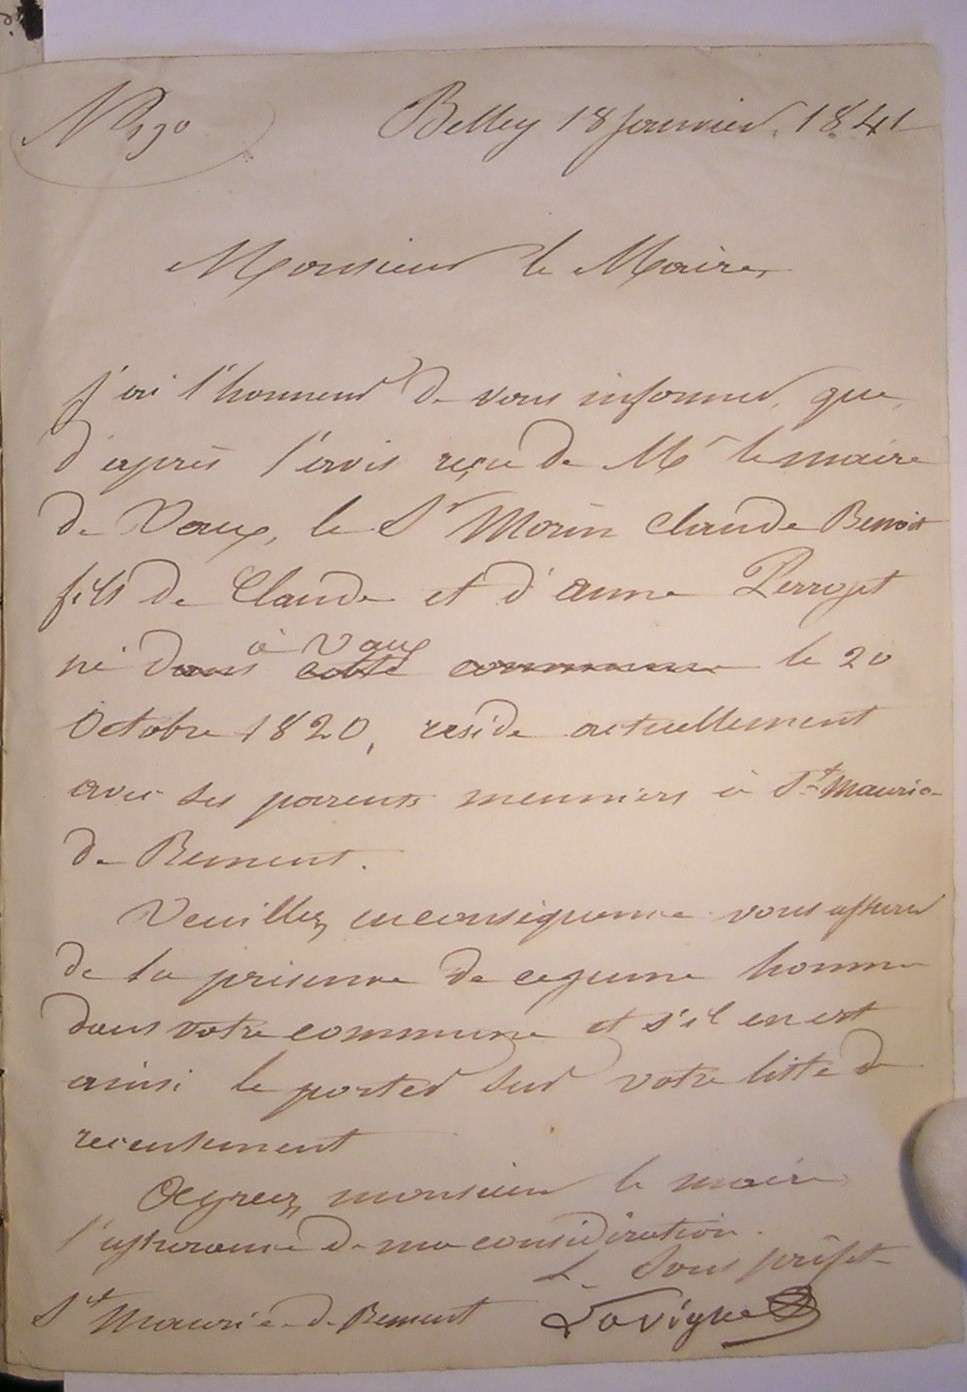 N° 190 Belley 18 janvier 1841
Monsieur le Maire,
J'ai l'honneur de vous informer, que,
d'après l'avis reçu de Mr le maire
de Vaux, le Sr Morin Claude Benoit
fils de Claude et d'anne Perroget
né dans cette commune à Vaux le 20
Octobre 1820, réside actuellement
avec ses parents meuniers à St Maurice
de Rement.
Veuillez en conséquence vous assurer
de la présence de ce jeune homme
dans votre commune et s'il en est
ainsi le porter sur votre liste de
recensement
Agréez, monsieur le maire
l'assurance de ma considération.
Le Sous préfet
St Maurice de Rement Lavigne